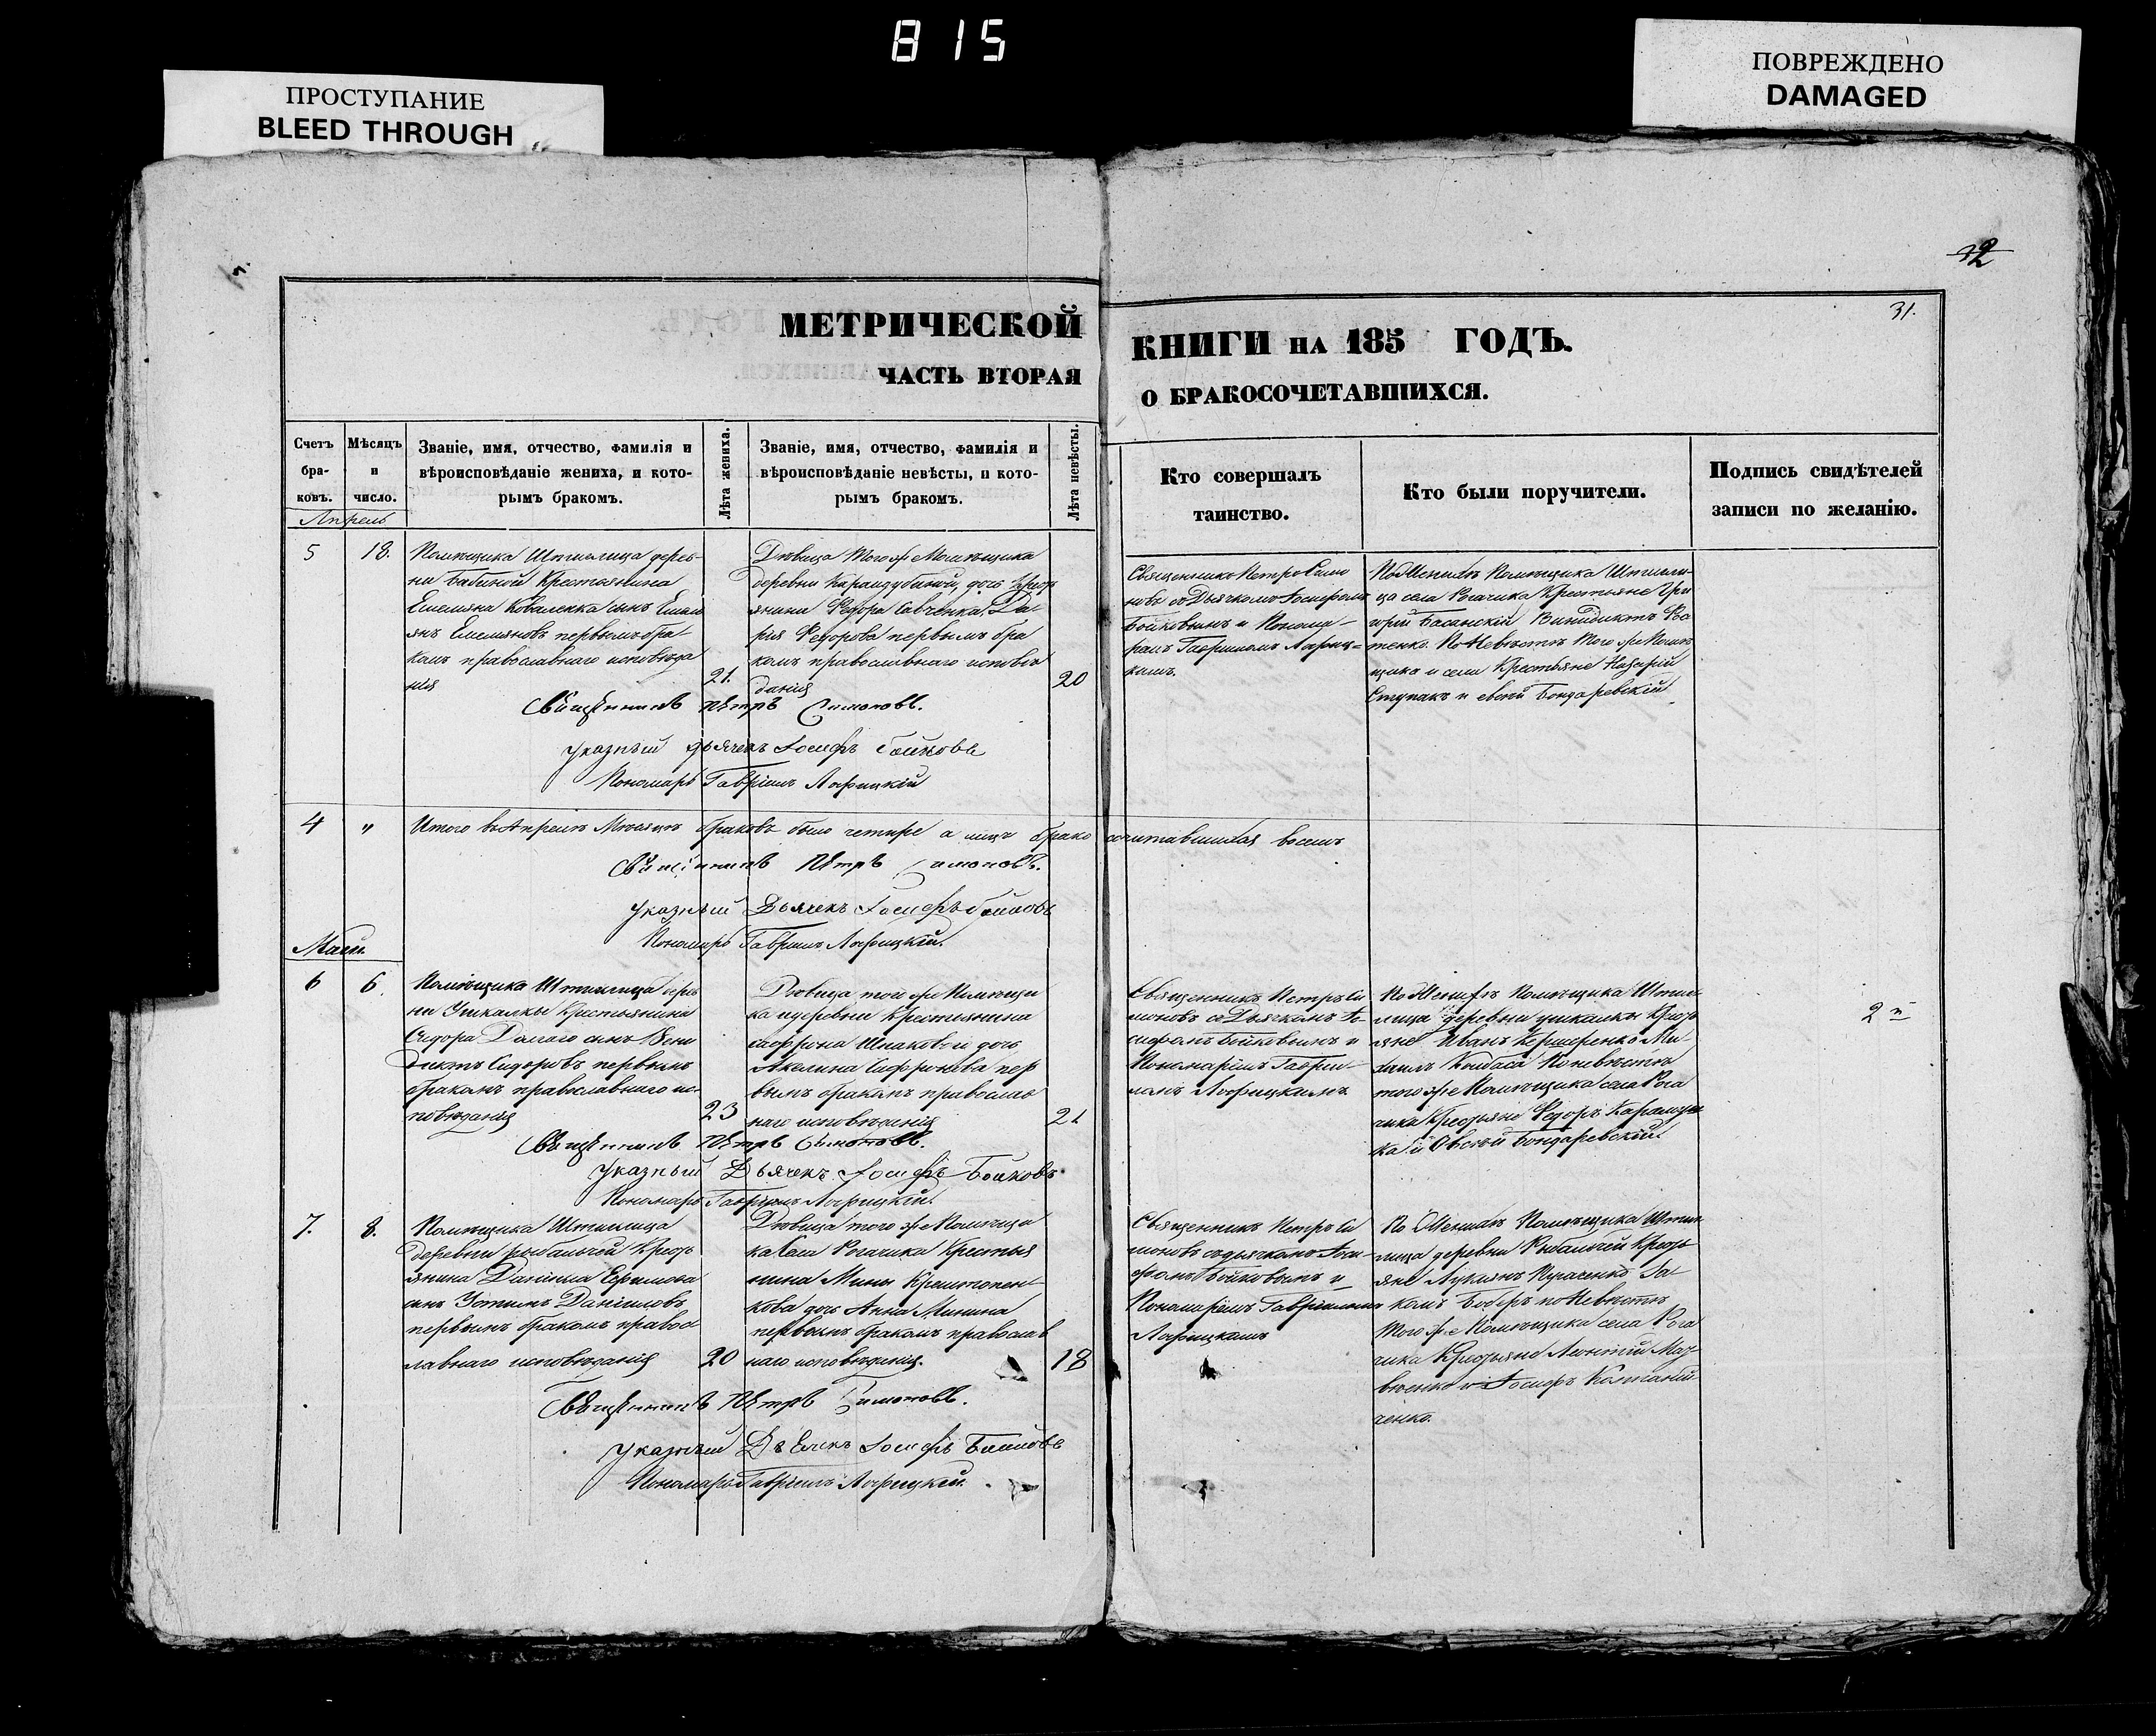 815
ПРОСТУПАНИЕ
BLEED THROUGH
ПОВРЕЖДЕНО
DAMAGED
32
31.
МЕТРИЧЕСКОЙ
КНИГИ НА 185 ГОДЪ.
ЧАСТЬ ВТОРАЯ
О БРАКОСОЧЕТАВШИХСЯ.
Счетъ
бра-
ковъ.
Мѣсяцъ
и
число.
Званіе, имя, отчество, фамилія и
вѣроисповѣданіе жениха, и кото-
рымъ бракомъ.
Лѣта жениха.
Званіе, имя, отчество, фамилія и
вѣроисповѣданіе невѣсты, и кото-
рымъ бракомъ.
Лѣта невѣсты.
Кто совершалъ
таинство.
Кто были поручители.
Подпись свидѣтелей
записи по желанію.
Апрель
5
18.
Помѣщика Штиглица дерев-
ни Бабиной Крестьянина
Емельяна Коваленка сынъ Емел
янъ Емеляновъ первымъ бра-
комъ православнаго исповѣда
нія
21.
Дѣвица того же Помѣщика
деревни Караидубиной, дочь Крест
янина Федора Савченка, Да-
рія Федорова первымъ бра
комъ православнаго исповѣ
данія
20
Священникъ Петръ Симо
новъ съ Дьячкомъ Іосифомъ
Бойковымъ и Понома-
ремъ Гавріиломъ Лофиц=
кимъ.
По Женихѣ Помѣщика Штигли-
ца села Рогачика Крестьяне Гри
горій Басанскій Винидиктъ
тенко. По Невѣстѣ того же Помѣ
щика и села Крестьяне Назарій
Ступакъ и Бондаревскій
Священникъ Петръ Симоновъ.
Указный дьячекъ Іосифъ Бойковъ
Пономарь Гавріилъ Лофицкій
4
"
Итого въ Апрелѣ Мѣсяцѣ браковъ было четыре а лицъ брако сочитавшихся восемь
Священникъ Петръ Симоновъ.
Указный Дьячекъ Іосифъ Бойковъ
Пономарь Гавріилъ Лофицкій.
Май.
6
6.
Помѣщика Штиглица дерев
ни Ушкалки Крестьянина
Сидора Долгаго сынъ Вени
диктъ Сидоровъ первымъ
бракомъ православнаго ис-
повѣданія
23
Дѣвица того же Помѣщи
ка и деревни Крестьянина
Софрона Шпаковой дочь
Акелина Софронова пер
вымъ бракомъ православ
наго исповѣданія
21
Священникъ Петръ Си
моновъ съ Дьячкомъ Іо-
сифомъ Бойковымъ и
Пономарёмъ Гаврии-
ломъ Лофицкимъ
По Женихѣ Помѣщика Штиг
лица деревни Ушкалки Крест
яне Иванъ Кершеренко Ми-
хаилъ Колбаса По невѣстѣ
того же Помѣщика села Рога
чика Крестьяне Федоръ
ка и Овсѣй Бондаревскій.
2
Священникъ Петръ Симоновъ.
Указный Дьячекъ Іосифъ Бойковъ
Пономарь Гавріилъ Лофицкій.
7.
8.
Помѣщика Штиглица
деревни рыбальчей Крест
янина Даніила Ефимова
сынъ Устинъ Даніиловъ
первымъ бракомъ правос
лавнаго исповѣданія
20
Дѣвица того же Помѣщи
ка села Рогачика Крестья
нина Мины
кова дочь Анна Минина
первымъ бракомъ православ
наго исповѣданія.
18
Священникъ Петръ Си
моновъ съ дьячкомъ Іоси-
фомъ Бойковымъ и
Пономарёмъ Гавріиломъ
Лофицкимъ
По Женихѣ Помѣщика Штиг
лица деревни Рыбальчей Крест
яне Лукіянъ Пугаченко Іа-
ковъ Боберъ по Невѣстѣ
того же Помѣщика села Рога
чика Крестьяне Леонтій Мат
вѣенко и Іосифъ
ченко.
Священникъ Петръ Симоновъ.
Указный Дьячекъ Іосифъ Бойковъ
Пономарь Гавріилъ Лофицкій.